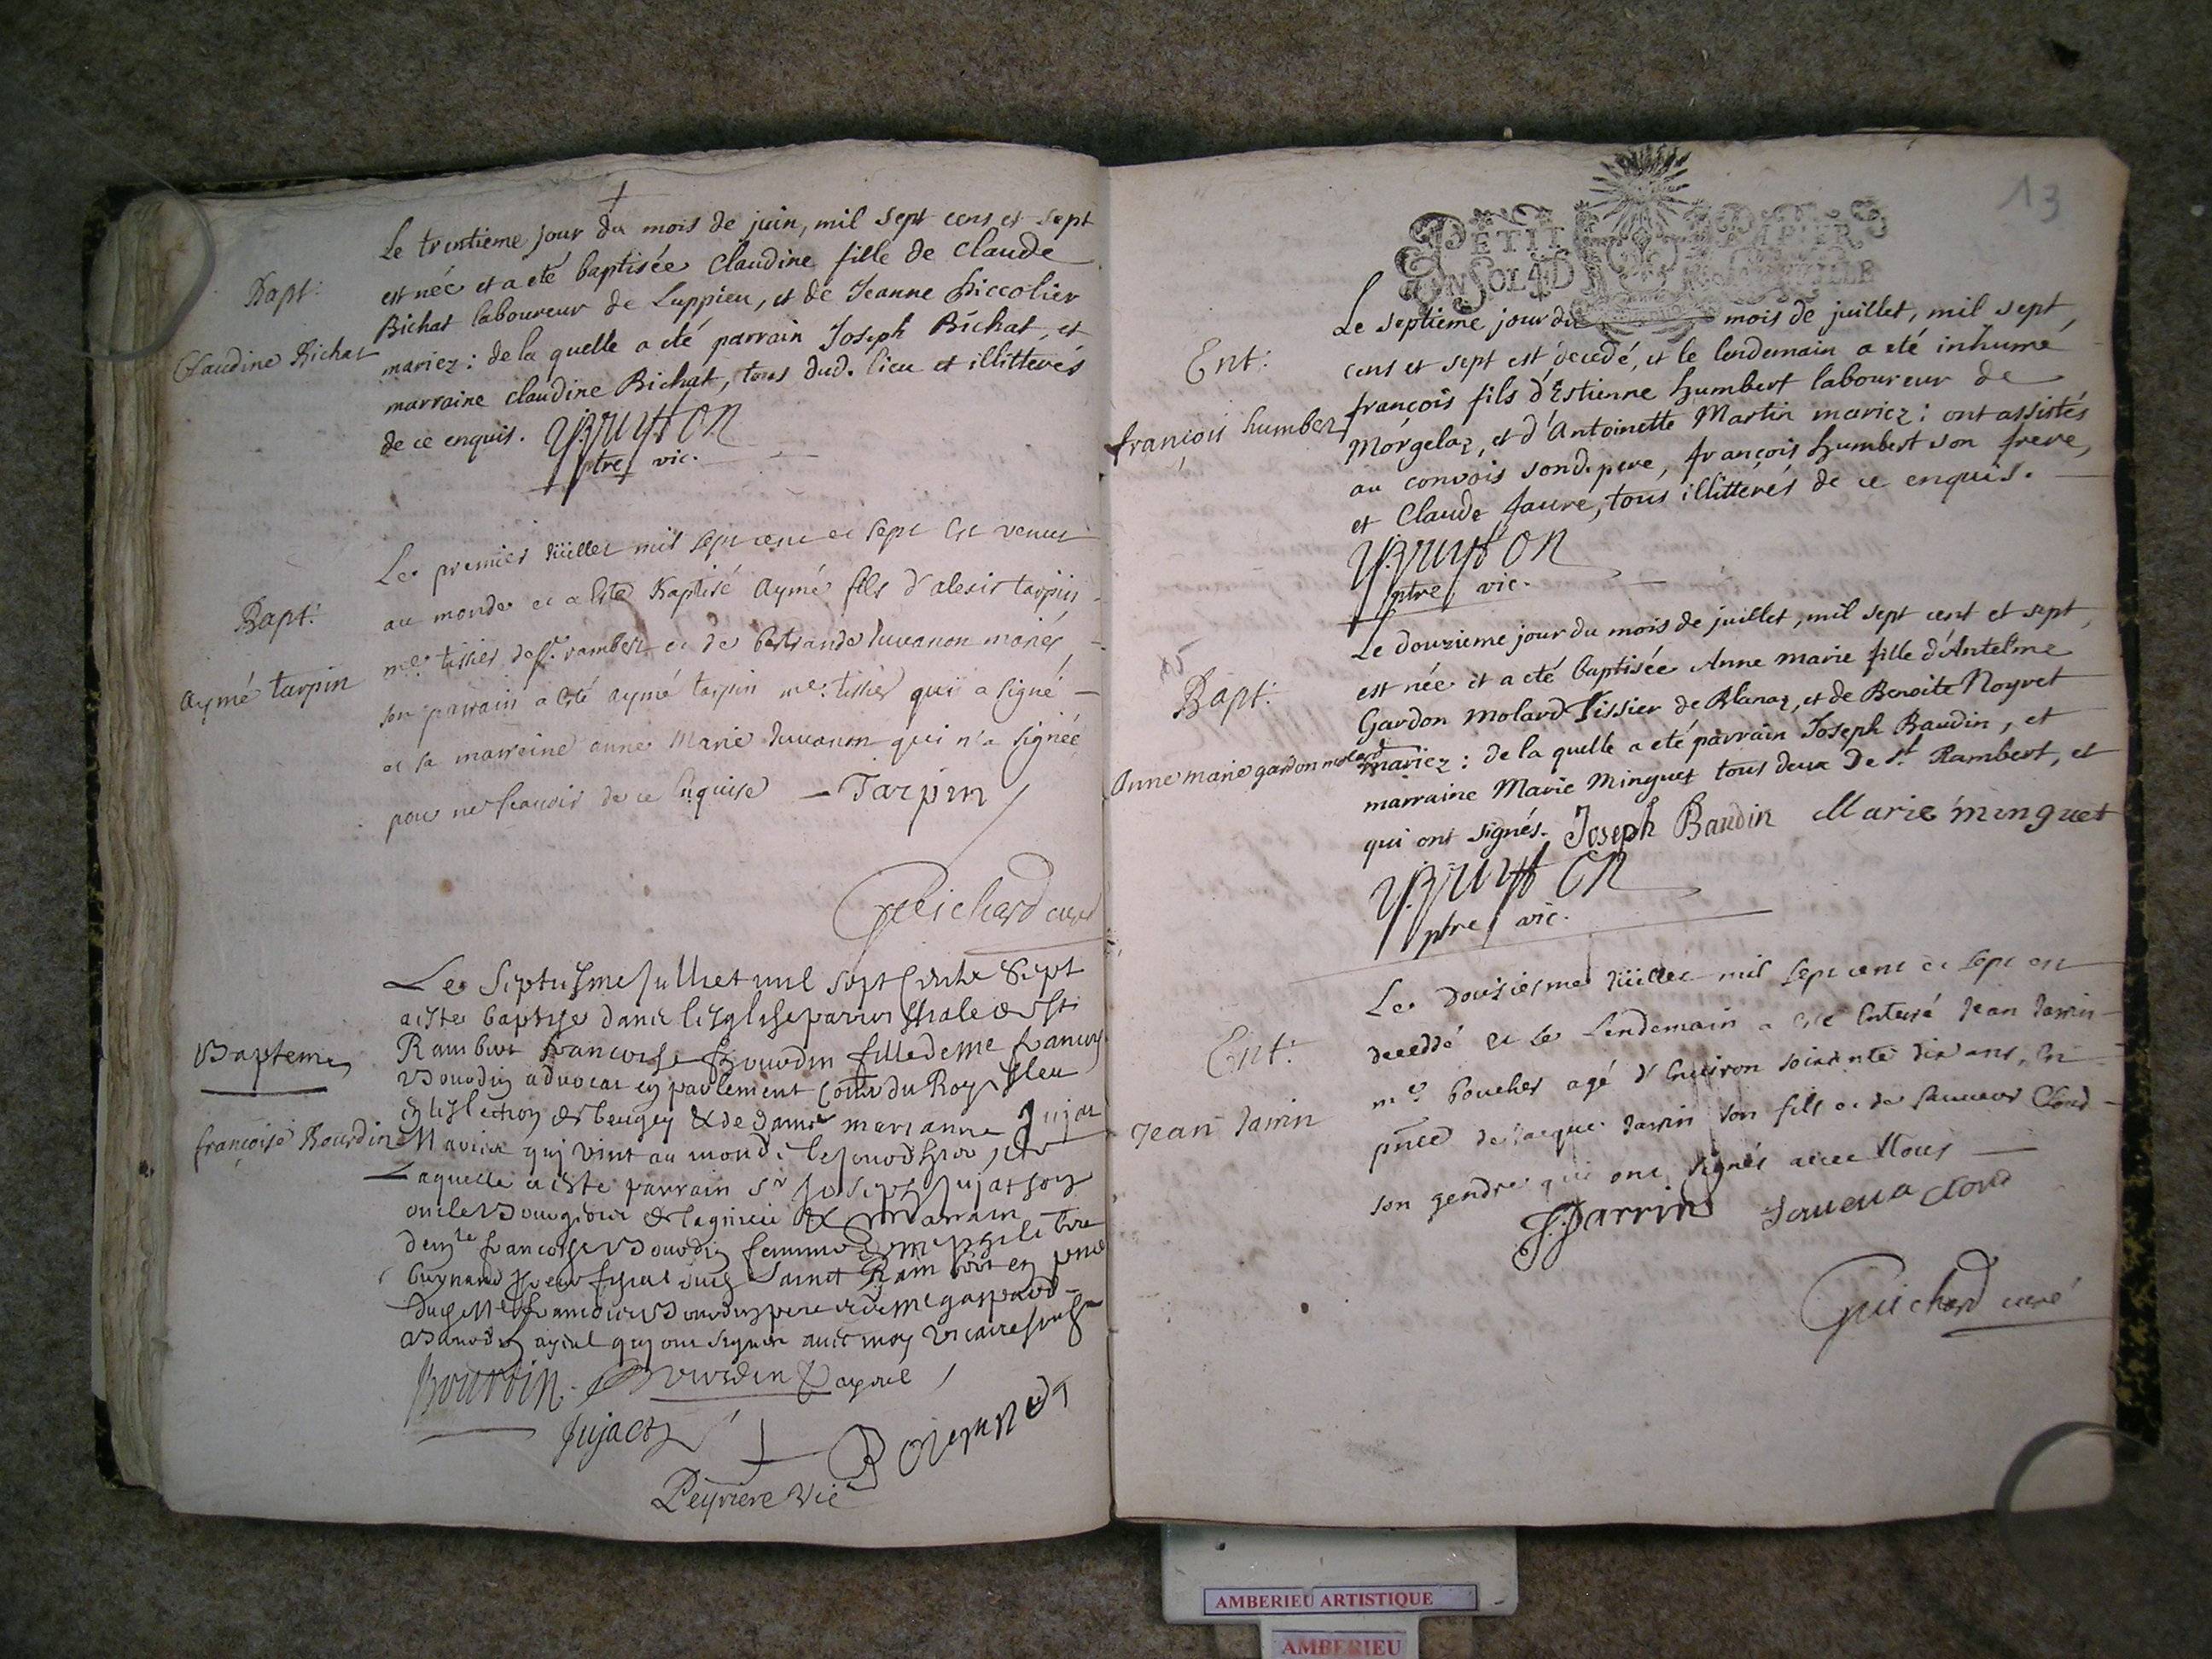 Le trentieme jour du mois de juin, mil sept cens et sept
est née et a eté baptisée Claudine fille de Claude
Bapt:
Bichat laboureur de Luppieu, et de Jeanne Piccolier
Claudine Bichat
mariez: de la quelle a eté parrain Joseph Bichat, et
marraine Claudine Bichat, tous dud. lieu et illitterés
de ce enquis. Bruyson
ptre vic.
Le premier Juillet mil sept cent et sept est venu
au monde et a esté Baptisé Aymé fils d'alexis tarpin
Bapt:
me tissier de st rambert et de bertrande Juvanon mariés
Aymé tarpin
son parrain a esté aymé tarpin me tissier qui a signé
et sa marreine anne Marie Juvanon qui n'a signée
pour ne scavoir de ce Enquise Tarpin
Guichard curé
Le Septiesme Juilliet mil sept cents Sept
a este baptise dans l'esglise parroissiale de St
Bapteme
Rambert francoise Bourdin fille de me francois
Bourdin advocat en parlement du Roy
en leslection de beugey & de dame marianne Jujat
françoise Bourdin
Mariée qui vint au monde le jour d'hier
Laquelle a este parrain Sr Joseph Jujat son
oncle Bourgeois de lagnieu & Marraine
francoise Bourdin femme
Saint Rambert en
francois Bourdin pere et de me gaspard
Bourdin ayeul qui ont signer avec moy vicaire
Bourdin. Bourdin ayeul
Jujat
Peyriere Vic
13
PETIT PAPIER
UN SOL 4 D LA FEUILLE
Le septieme jour du mois de juillet, mil sept
Ent:
cens et sept est decedé, et le lendemain a eté inhumé
françois fils d'Estienne humbert laboureur de
françois humbert
Morgelaz, et d'Antoinette Martin mariez: ont assistés
au convois sond. pere, françois humbert son frere,
et Claude faure, tous illitterés de ce enquis.
Bruyson
ptre vic.
Le douzieme jour du mois de juillet, mil sept cent et sept,
15
est née et a eté baptisée Anne marie fille d'Antelme
Bapt:
Gardon Molard Tissier de Blanaz, et de Benoite Noyret
Anne marie gardon molard
mariez: de la quelle a eté parrain Joseph Baudin, et
marraine Marie Minguet tous deux de st. Rambert, et
qui ont signés. Joseph Baudin Marie minguet
Bruyson
ptre vic.
Le dousiesme Juillet mil sept cent et sept est
decedé et le Lendemain a esté Enterré Jean Jarrin
Ent:
me boucher agé d'Environ soixante dix ans, En
Jean Jarrin
pnce de Jacque Jarrin son fils et de sauveur Clord
son gendre qui ont signés avec Nous
J. Jarrin Sauveur Clord
Guichard curé
AMBERIEU ARTISTIQUE
AMBERIEU